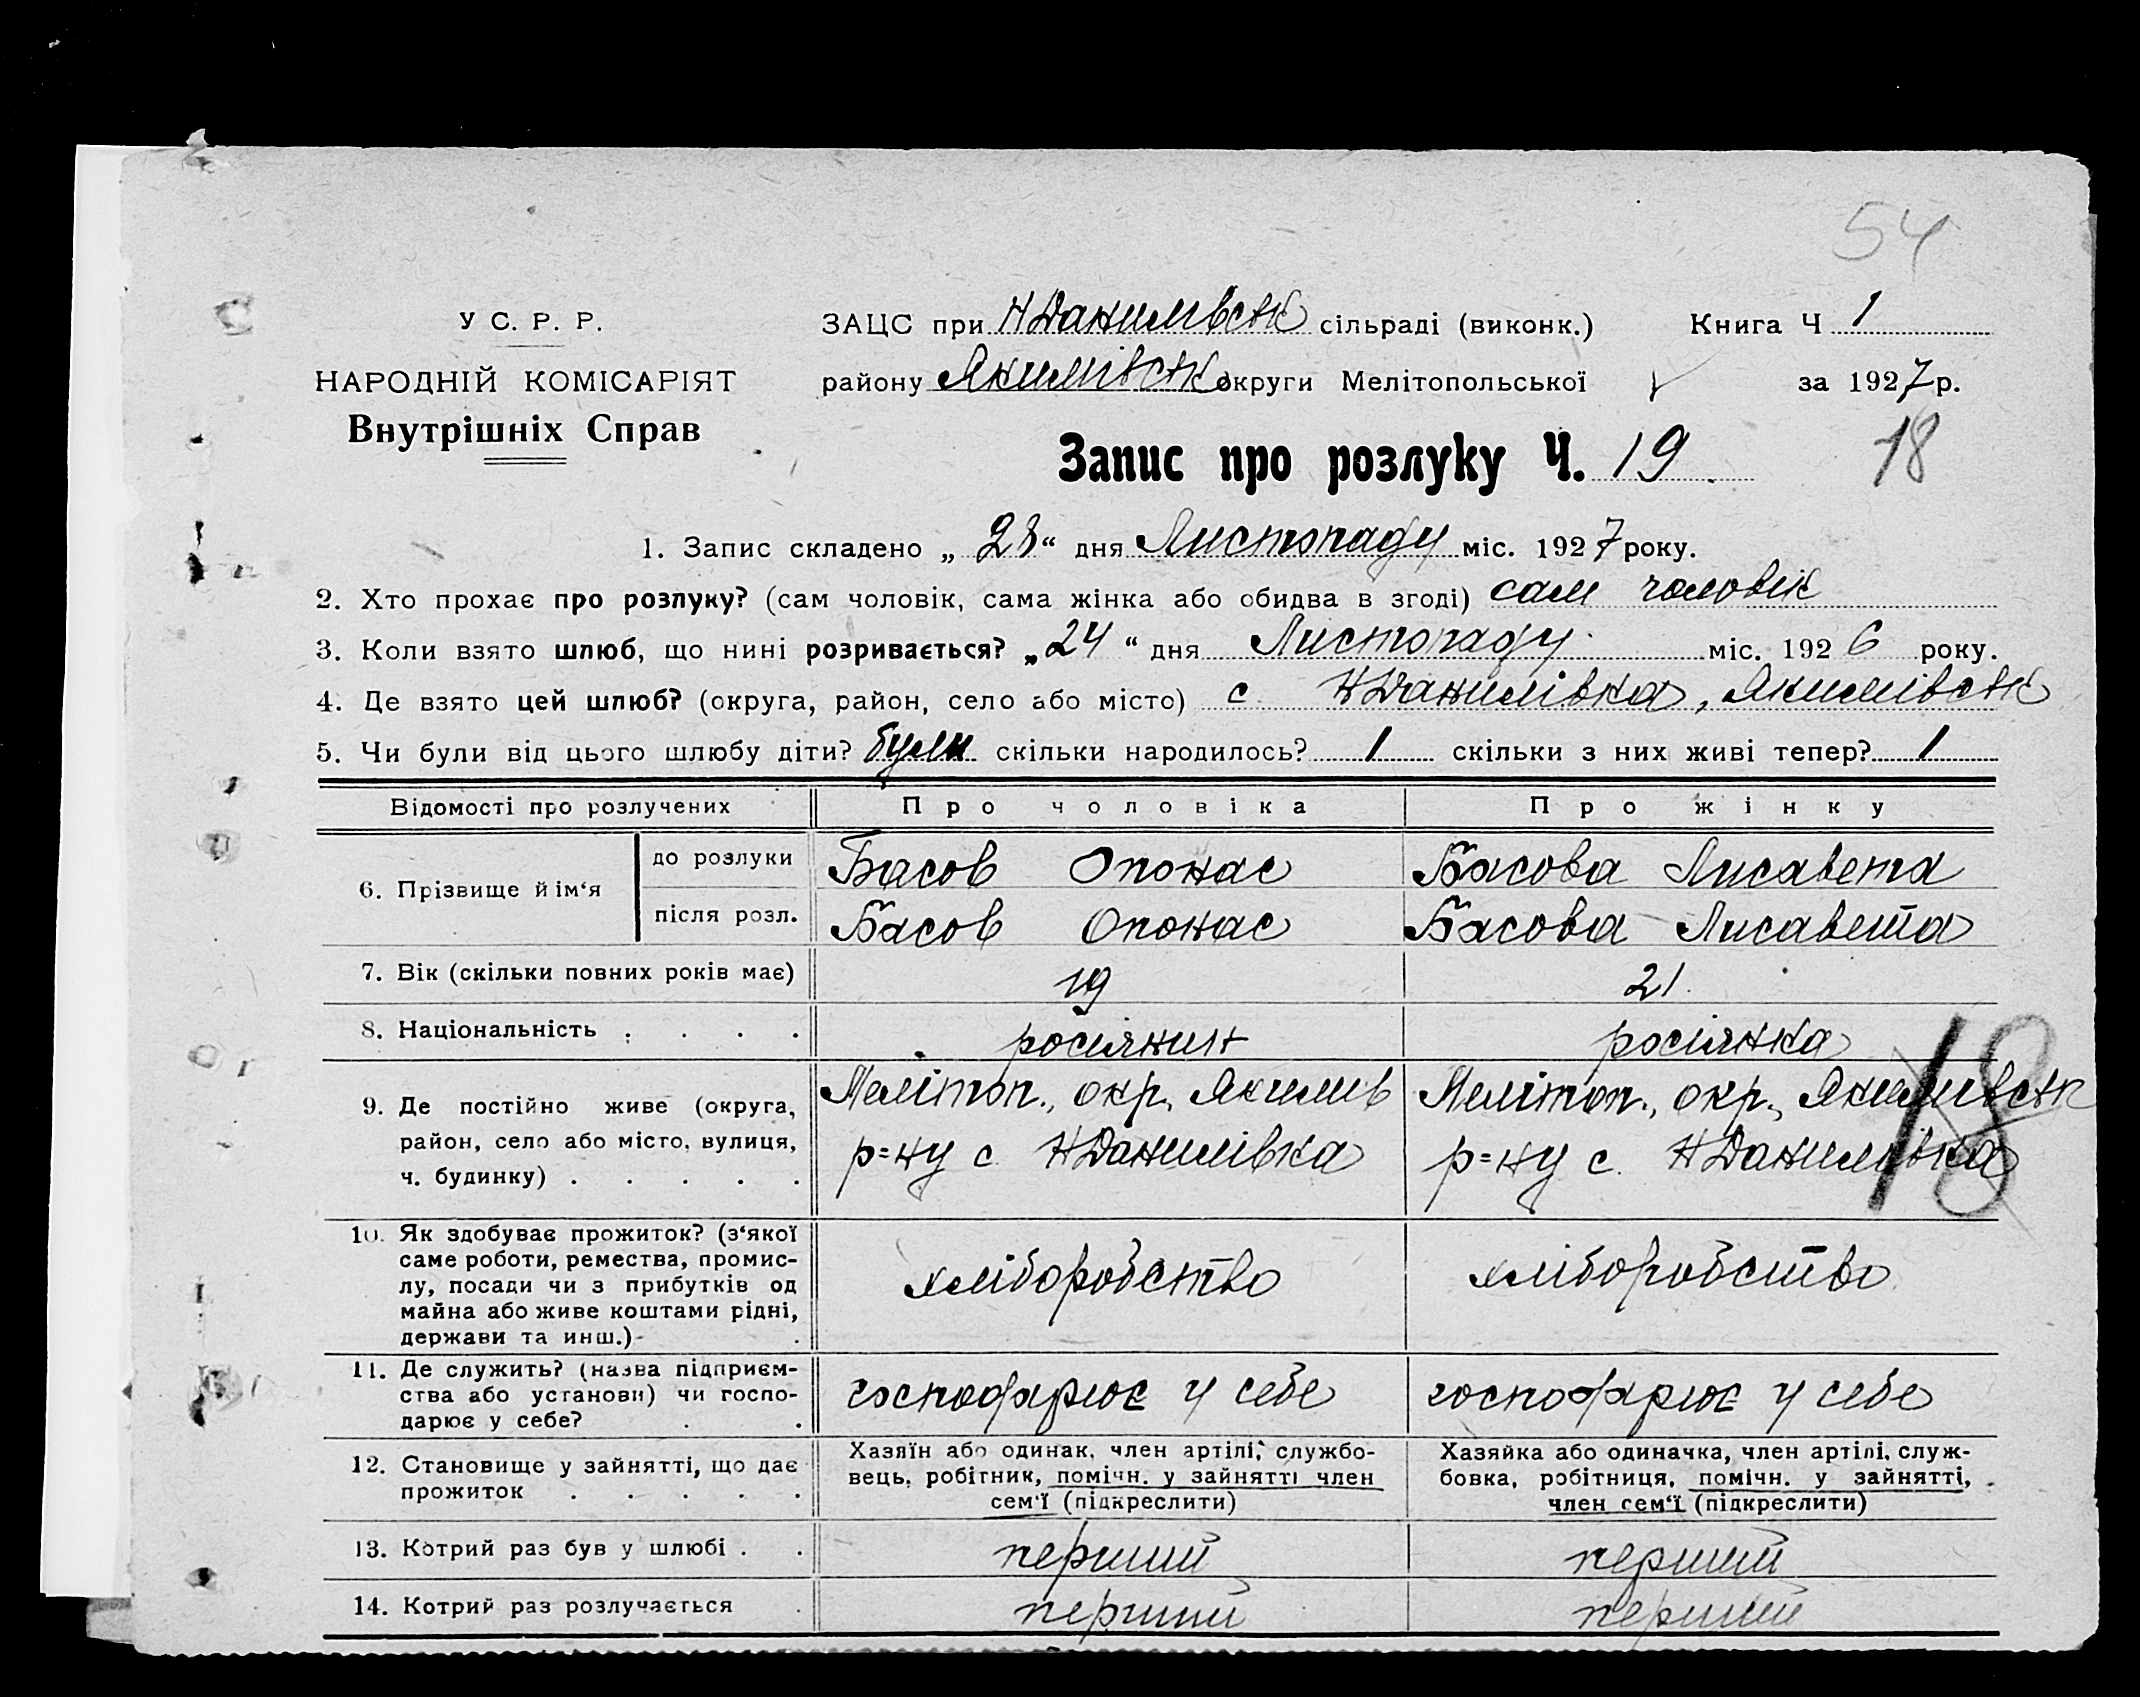 54
У С. Р. Р.
НАРОДНІЙ КОМІСАРІЯТ
Внутрішніх Справ
ЗАЦС при НДанилівськ сільраді (виконк.) Книга Ч 1
району Якимівськ округи Мелітопольської за 1927 р.
Запис про розлуку Ч. 19 18
1. Запис складено „ 28 “ дня Листопаду міс. 1927 року.
2. Хто прохає про розлуку? (сам чоловік, сама жінка або обидва в згоді) сам чоловік
3. Коли взято шлюб, що нині розривається? „ 24 “ дня Листопаду міс. 1926 року.
4. Де взято цей шлюб? (округа, район, село або місто) с НДанилівка, Якимівськ
5. Чи були від цього шлюбу діти? були скільки народилось? 1 скільки з них живі тепер? 1
Відомості про розлучених Про чоловіка Про жінку
6. Прізвище й ім‘я
до розлуки Басов Опонас Басова Лисавета
після розл. Басов Опонас Басова Лисавета
7. Вік (скільки повних років має) 19 21
8. Національність . . . . росіянин росіянка
9. Де постійно живе (округа, район, село або місто, вулиця, ч. будинку) . . . . .
Меліт‌оп., окр, Якимив
р=ну с НДанилівка
Мелітоп., окр., Якимивськ
р=ну с. НДанилівка
18
10. Як здобуває прожиток? (з‘якої
саме роботи, ремества, промис-
лу, посади чи з прибутків од
майна або живе коштами рідні,
держави та инш.) .
хліборобство хліборобство
11. Де служить? (назва підприєм-
ства або установи) чи госпо-
дарює у себе? . .
господарює у себе господарює у себе
12. Становище у зайнятті, що дає
прожиток . . . . .
Хазяїн або одинак, член артілі, службо-
вець, робітник, помічн. у зайнятті член
сем‘ї (підкреслити)
Хазяйка або одиначка, член артілі, служ-
бовка, робітниця, помічн. у зайнятті,
член сем‘ї (підкреслити)
13. Котрий раз був у шлюбі . . перший перший
14. Котрий раз розлучається перший перший